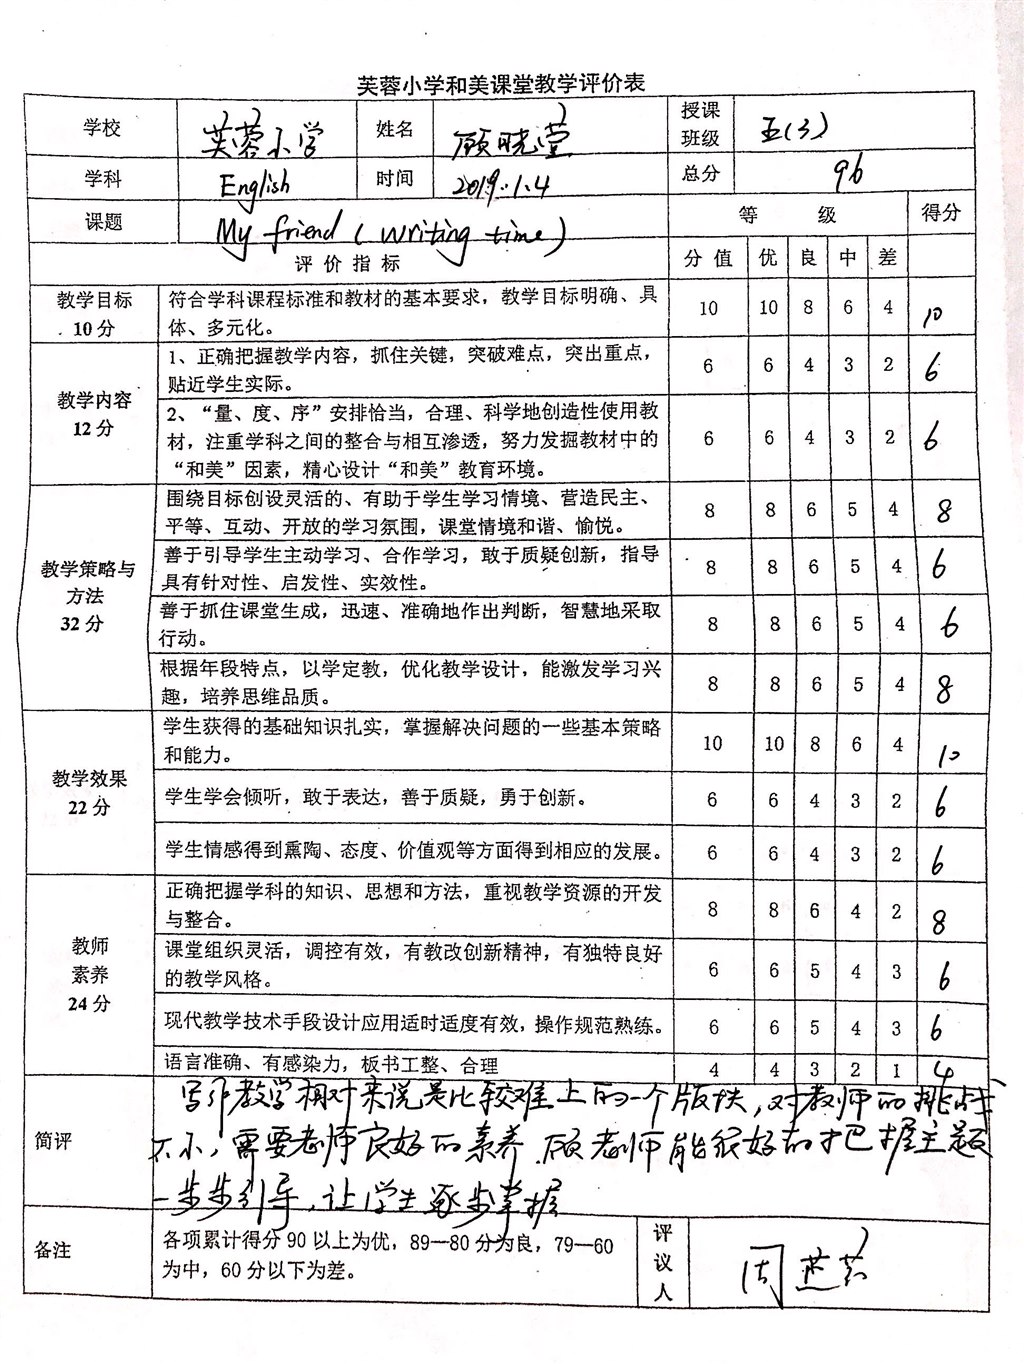 芙蓉小学和美课堂教学评价表
学校 芙蓉小学 姓名 顾晓莹 授课班级 五(3)
学科 English 时间 2019.1.4 总分 96
课题 My friend (writing time) 等 级 得分
评价指标 分值 优 良 中 差
教学目标 符合学科课程标准和教材的基本要求，教学目标明确、具
10分 体、多元化。 10 10 8 6 4 10
教学内容
12分
1、正确把握教学内容，抓住关键，突破难点，突出重点，
贴近学生实际。 6 6 4 3 2 6
2、“量、度、序”安排恰当，合理、科学地创造性使用教
材，注重学科之间的整合与相互渗透，努力发掘教材中的
“和美”因素，精心设计“和美”教育环境。 6 6 4 3 2 6
教学策略与
方法
32分
围绕目标创设灵活的、有助于学生学习情境、营造民主、
平等、互动、开放的学习氛围，课堂情境和谐、愉悦。 8 8 6 5 4 8
善于引导学生主动学习、合作学习，敢于质疑创新，指导
具有针对性、启发性、实效性。 8 8 6 5 4 6
善于抓住课堂生成，迅速、准确地作出判断，智慧地采取
行动。 8 8 6 5 4 6
根据年段特点，以学定教，优化教学设计，能激发学习兴
趣，培养思维品质。 8 8 6 5 4 8
教学效果
22分
学生获得的基础知识扎实，掌握解决问题的一些基本策略
和能力。 10 10 8 6 4 10
学生学会倾听，敢于表达，善于质疑，勇于创新。 6 6 4 3 2 6
学生情感得到熏陶、态度、价值观等方面得到相应的发展。 6 6 4 3 2 6
教师
素养
24分
正确把握学科的知识、思想和方法，重视教学资源的开发
与整合。 8 8 6 4 2 8
课堂组织灵活，调控有效，有教改创新精神，有独特良好
的教学风格。 6 6 5 4 3 6
现代教学技术手段设计应用适时适度有效，操作规范熟练。 6 6 5 4 3 6
语言准确、有感染力，板书工整、合理 4 4 3 2 1 4
简评
写作教学相对来说是比较难上的一个版块，对教师的挑战
不小，需要老师良好的素养。顾老师能很好的把握主题
一步步引导，让学生逐步掌握
备注
各项累计得分90以上为优，89—80分为良，79—60
为中，60分以下为差。
评议人 周燕芬